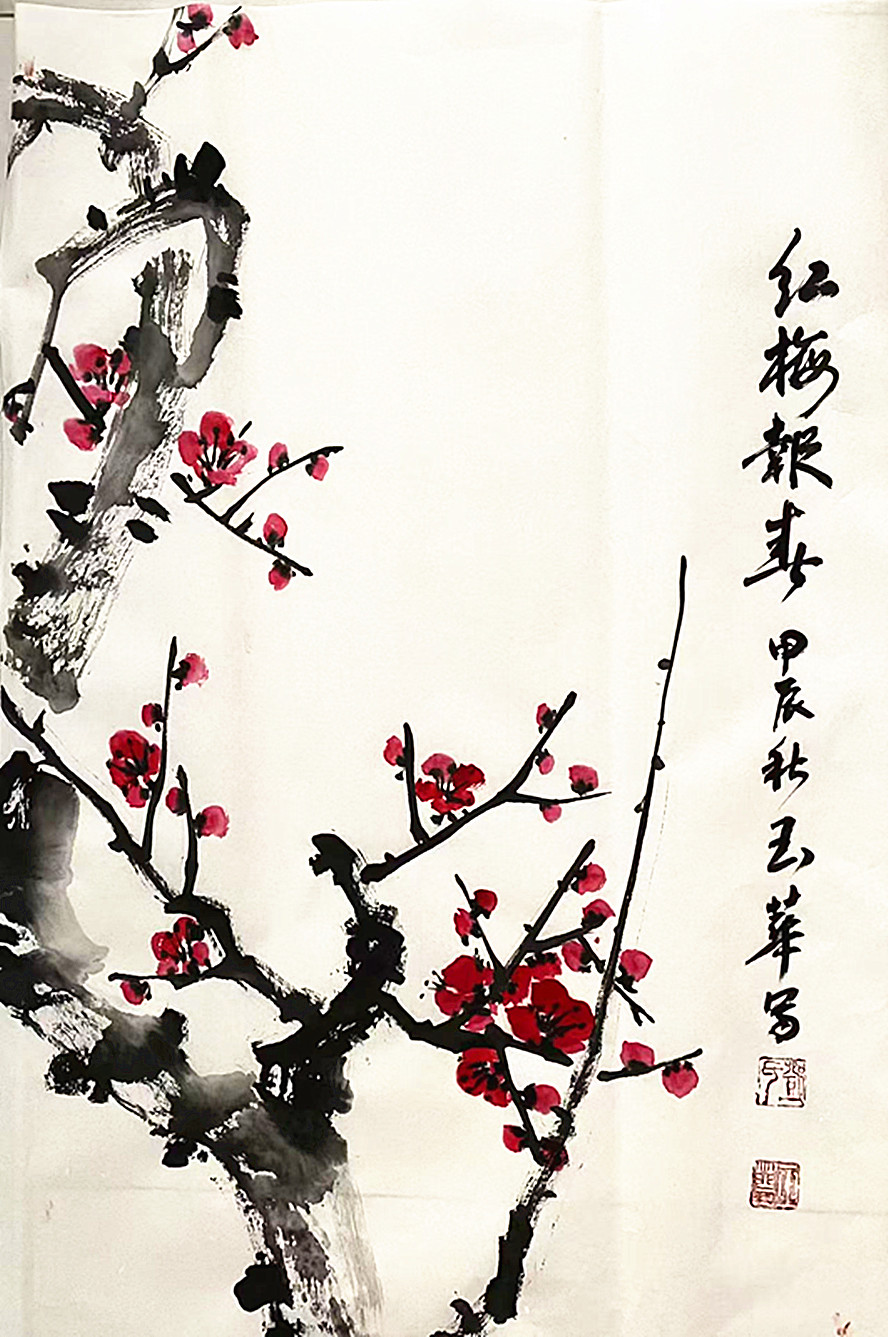 红梅報春 甲辰秋 玉華写